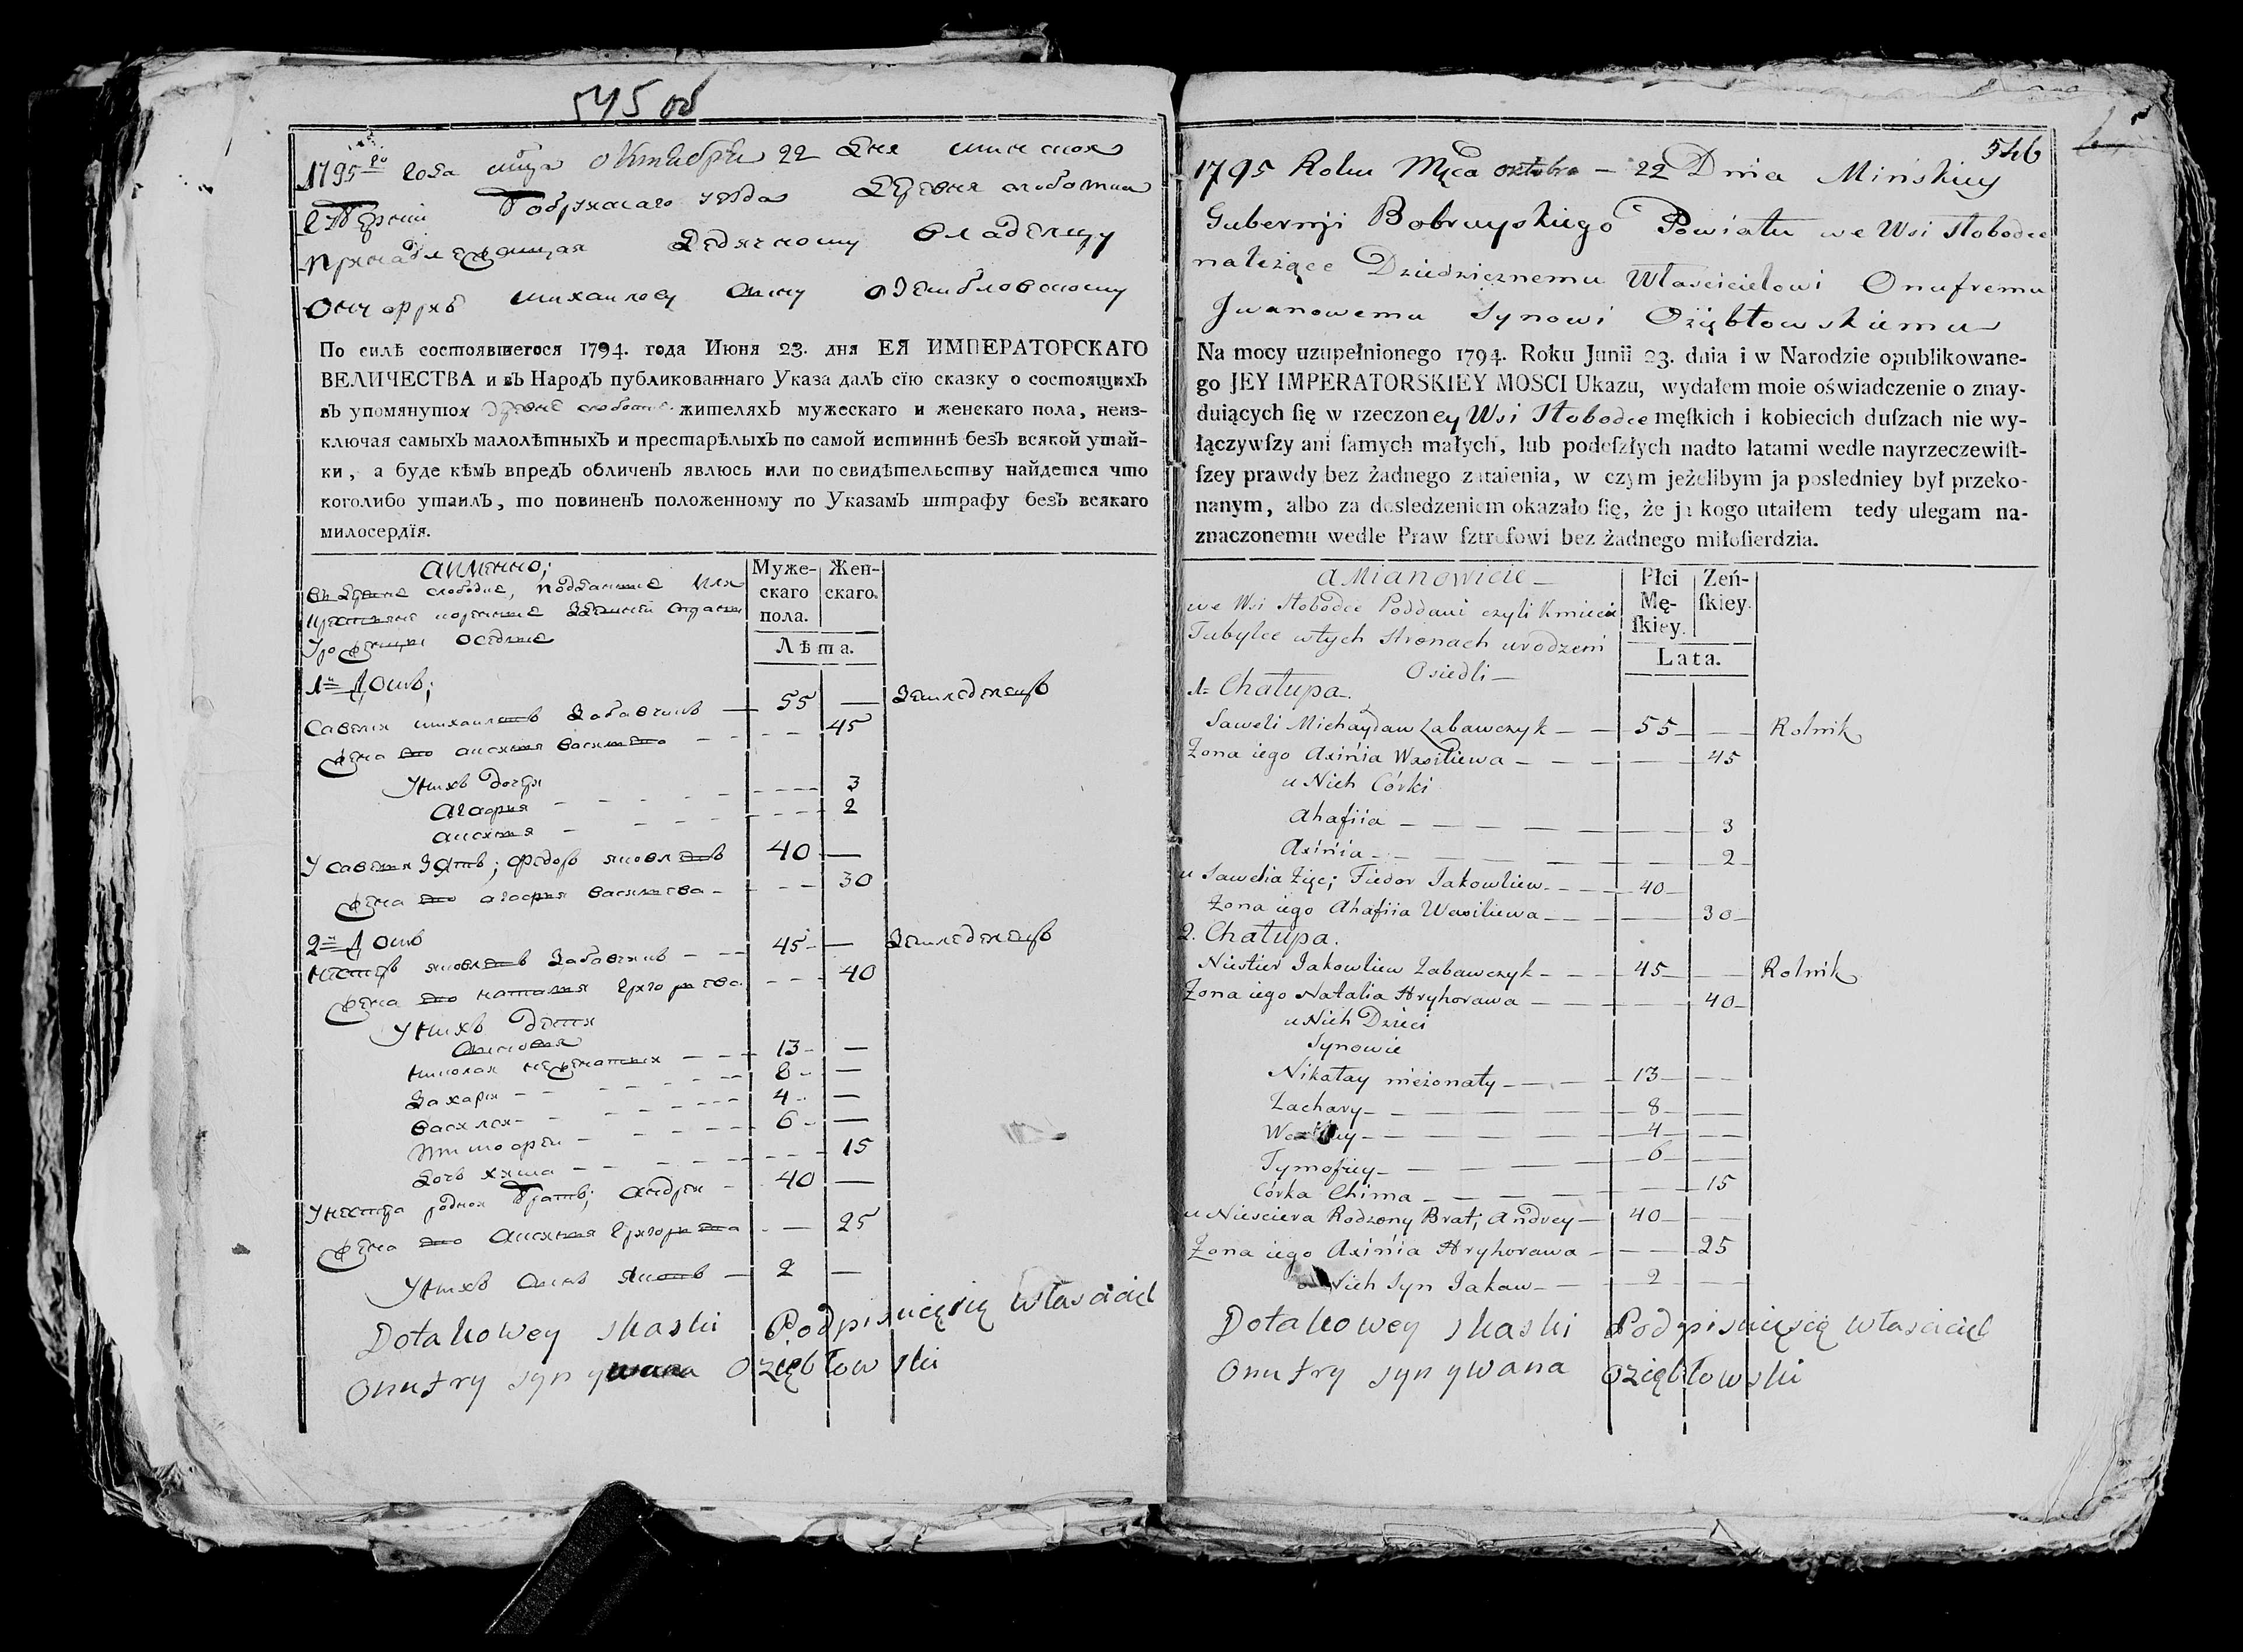 545 об
1795го года мца октября 22 дня минской
губернии Бобруйскаго уезда деревня слободка
принадлежащая Дедичному владелцу
Онуфрию михайлову сыну озембловскому
По силѣ состоявшегося 1794. года Июня 23. дня ЕЯ ИМПЕРАТОРСКАГО
ВЕЛИЧЕСТВА и въ Народъ публикованнаго Указа далъ сїю сказку о состоящихъ
въ упомянутой деревне слободке жителяхъ мужескаго и женскаго пола, неиз-
ключая самыхъ малолѣтныхъ и престарѣлыхъ по самой истиннѣ безъ всякой утай-
ки, а буде кѣмъ впредъ обличенъ явлюсь или по свидѣтельству найдется что
коголибо утаилъ, то повиненъ положенному по Указамъ штрафу безъ всякаго
милосердїя.
аименно;
въ деревне слободке, подданные или
крестьяне коренные здешней страны
урожденцы оседлые
Муже-
скаго
пола.
Жен-
скаго.
Лѣта.
1й Домъ;
Савелий михайловъ Забавчикъ — 55 — Земледелецъ
жена его аксиния василиева 45
У нихъ дочери
агафия 3
аксиния 2
У савелия Зять; Федоръ яковлевъ 40 —
жена его агафия василиева 30
2й Домъ
Нестеръ яковлевъ Забавчикъ 45 — Земледелецъ
жена его наталия григориева 40
У нихъ дети
сыновия
николай нежонатый 13 —
Захарий 8 —
василей 4 —
тимофей 6 —
дочь хима 15
У нестера родной братъ; андрей 40 —
жена его аксиния григориева — 25
У нихъ сынъ яковъ — 2 —
Dotakowey skaski Podpisuięsię własciciel
Onufry syn ywana oziębłowski
546
1795 Roku Mca oktobra – 22 Dnia Mińskiey
Gubernji Bobruyskiego Powiatu we Wsi słobodce
należące Dziedzicznemu Własicielowi Onufremu
Jwanowemu Synowi Oziębłowskiemu
Na mocy uzupełnionego 1794. Roku Junii 23. dnia i w Narodzie opublikowane-
go JEY IMPERATORSKIEY MOSCI Ukazu, wydałem moie oświadczenie o znay-
duiących ſię w rzeczoney Wsi Słobodce męſkich i kobiecich duſzach nie wy-
łączywſzy ani ſamych małych, lub podeſzłych nadto latami wedle nayrzeczewiſt-
ſzey prawdy bez żadnego zataienia, w czym jeżelibym ja posledniey był przeko-
nanym, albo za dosledzeniem okazało ſię, że ja kogo utaiłem tedy ulegam na-
znaczonemu wedle Praw ſztrofowi bez żadnego miłoſierdzia.
a Mianowicie —
we Wsi słobodce Poddani czyli Kmiecie
Tubylce wtych stronach urodzeni
Osiedli —
Płci
Mę-
ſkiey.
Zeń-
ſkiey.
Lata.
1. Chałupa.
Saweli Michayław Zabawczyk — 55 — Rolnik
Zona iego Axińia Wasiliewa — 45
u Nich Córki
Ahafiia — 3
Axińia — 2
u Sawelia Zięc; Fiedor Jakowliew — 40
Zona iego Ahafiia Wasiliewa — 30
2. Chałupa.
Niestier Jakowliew Zabawczyk — 45 — Rolnik
Zona iego Natalia Hryhorawa — 40
u Nich Dzieci
Synowie
Nikałay nieżonaty — 13 —
Zachary — 8 —
4 —
Tymofiey — 6 —
Córka Chima — 15
u Niesciera Rodzony Brat; Andrey — 40 —
Zona iego Axińia Hryhorawa — 25
u Nich Syn Jakaw — 2 —
Dotakowey skaski Podpisuięsię własciciel
Onufry syn ywana oziębłowski